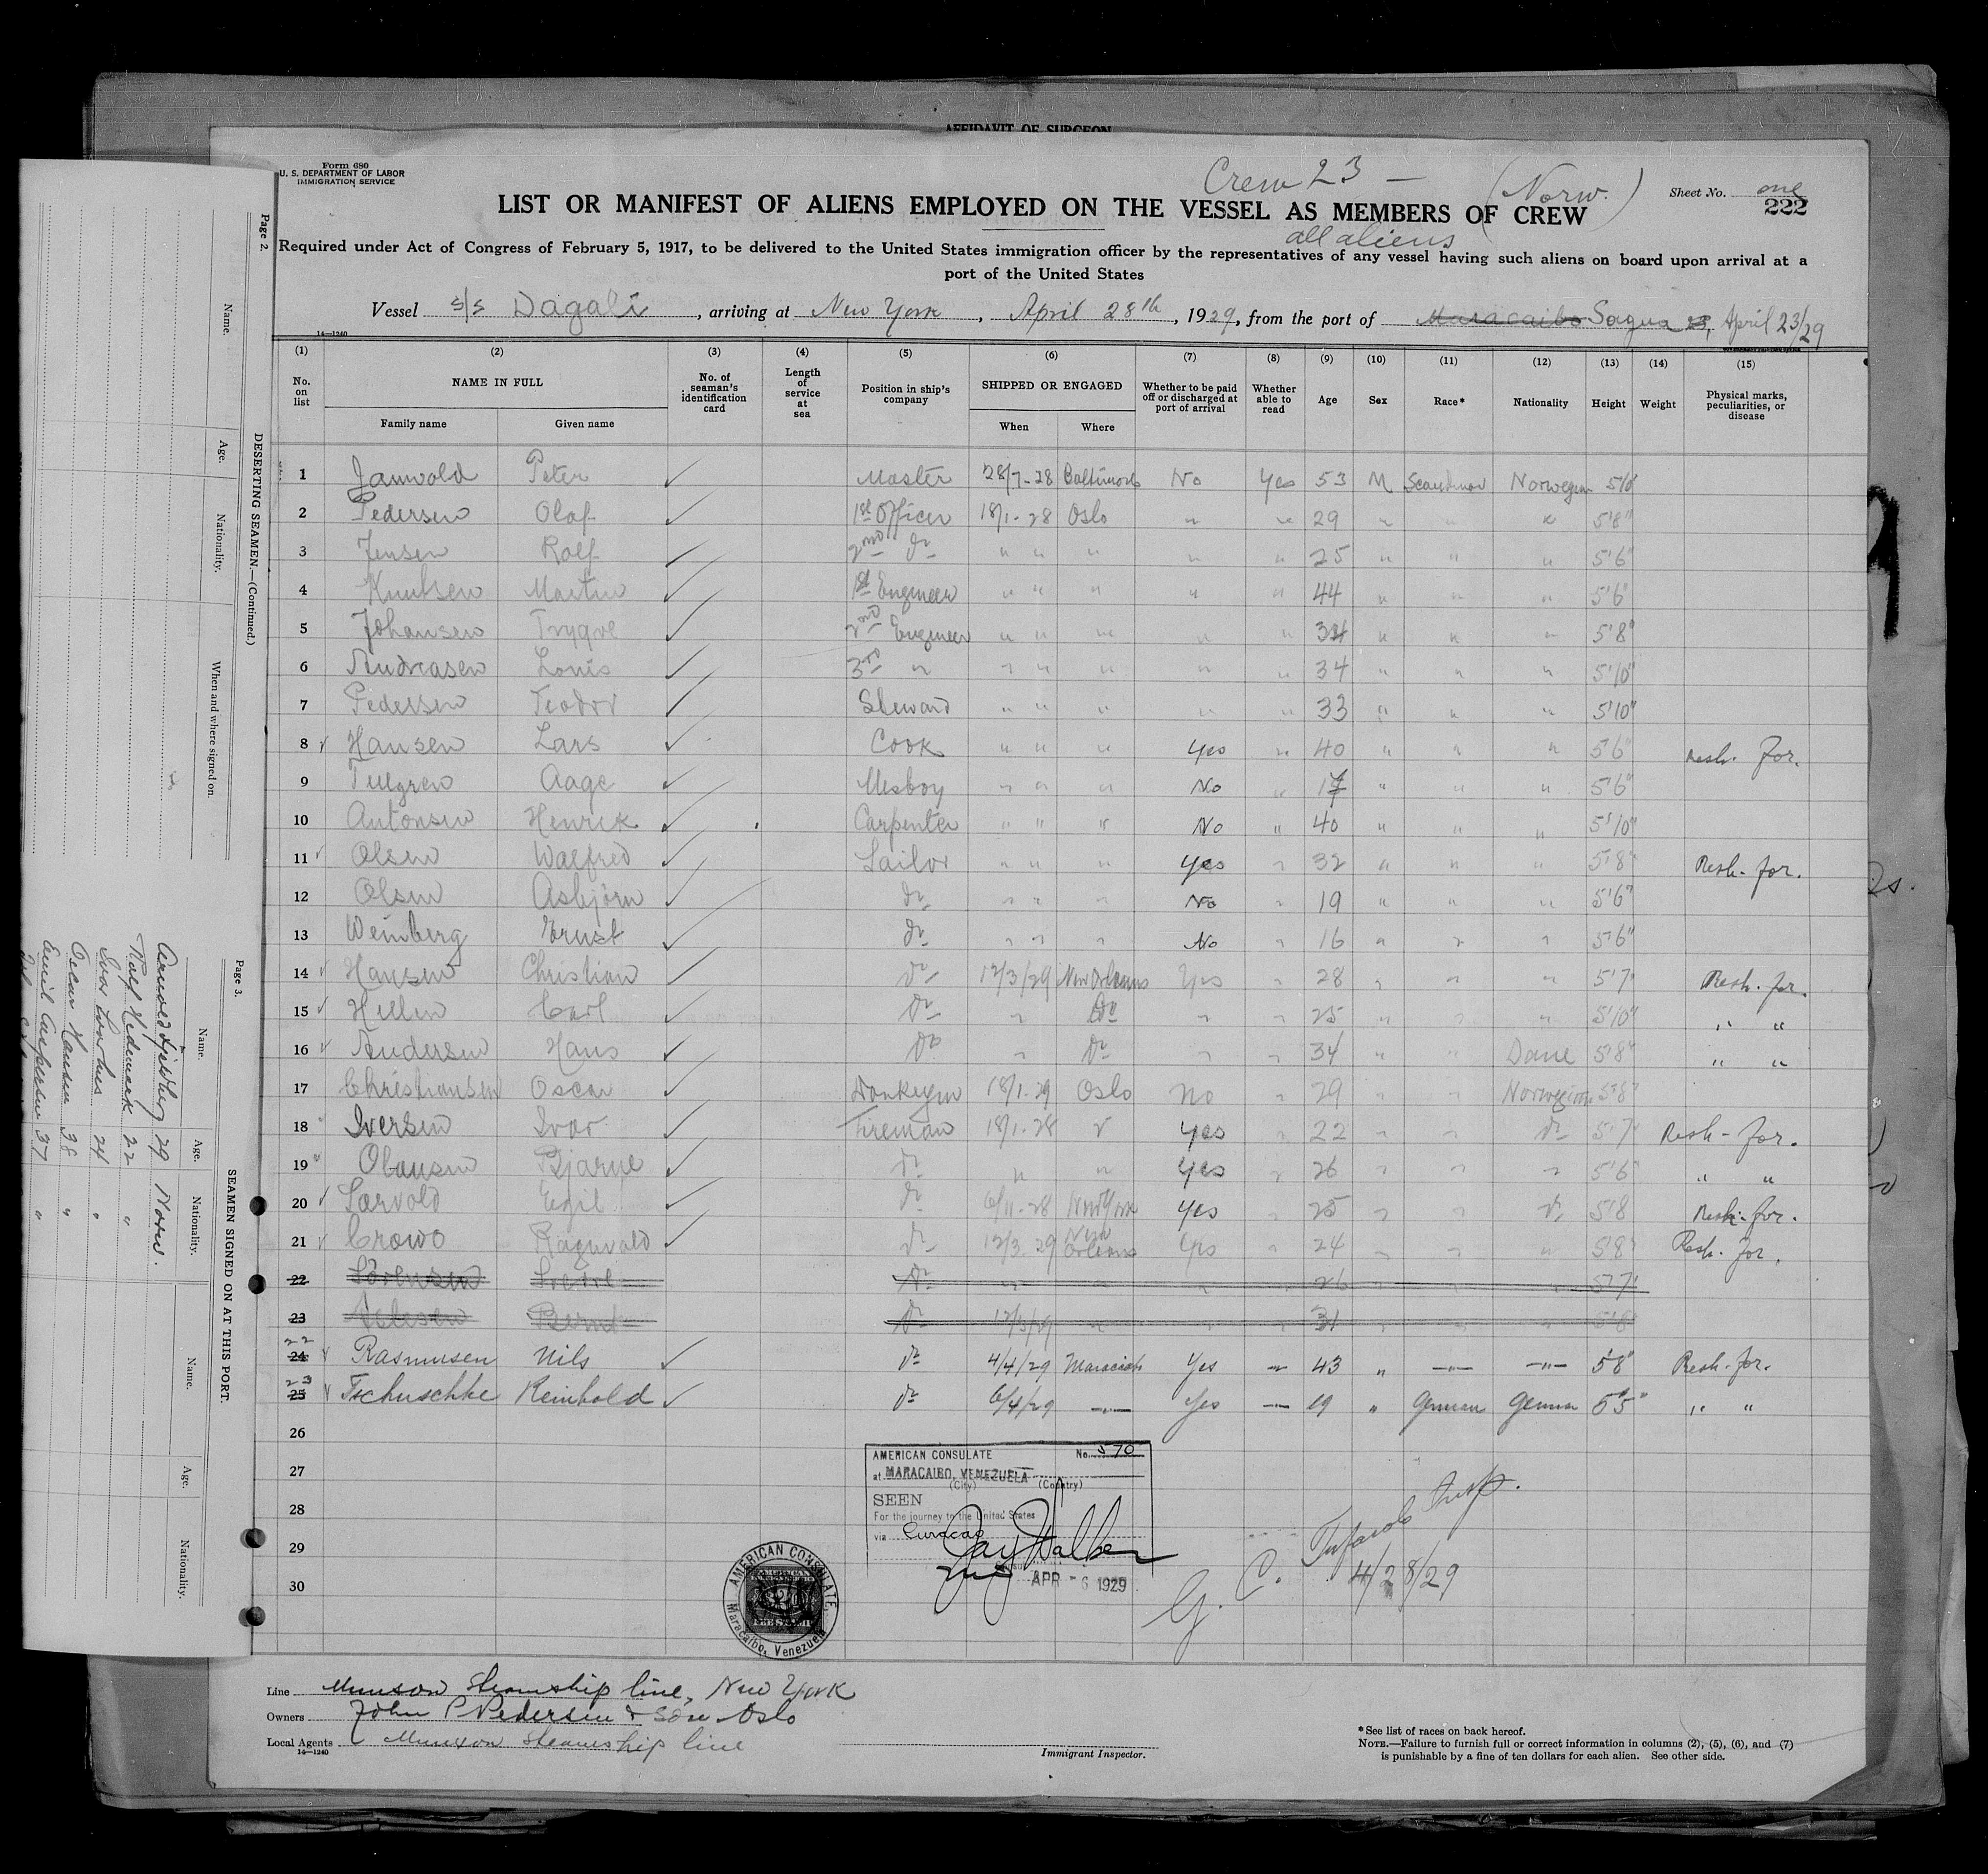 AFFIDAVIT OF SURGEON
Form 680
U. S. DEPARTMENT OF LABOR
IMMIGRATION SERVICE
Crew 23 — (Norw.)
Sheet No. one
222
LIST OR MANIFEST OF ALIENS EMPLOYED ON THE VESSEL AS MEMBERS OF CREW
all aliens
Required under Act of Congress of February 5, 1917, to be delivered to the United States immigration officer by the representatives of any vessel having such aliens on board upon arrival at a
port of the United States
Vessel s/s Dagali, arriving at New York, April 28th, 1929, from the port of Maracaibo Sagua, April 23/29
14—1240
(1) (2) (3) (4) (5) (6) (7) (8) (9) (10) (11) (12) (13) (14) (15)
No. on list
NAME IN FULL
Family name
Given name
No. of seaman's identification card
Length of service at sea
Position in ship's company
SHIPPED OR ENGAGED
When
Where
Whether to be paid off or discharged at port of arrival
Whether able to read
Age
Sex
Race*
Nationality
Height
Weight
Physical marks, peculiarities, or disease
1 Peter ✓ Master 28/7-28 Baltimore No Yes 53 M Scandinav Norwegian 5'10"
2 Pedersen Olaf ✓ 1st Officer 18/1-28 Oslo " " 29 " " " 5'8"
3 Jensen Rolf ✓ 2nd do " " " " " 25 " " " 5'6"
4 Knutsen Martin ✓ 1st Engineer " " " " " 44 " " " 5'6"
5 Johansen Trygve ✓ 2nd Engineer " " " " " 34 " " " 5'8"
6 Andreasen Louis ✓ 3rd " " " " " " 34 " " " 5'10"
7 Pedersen Teodor ✓ Steward " " " " " 33 " " " 5'10"
8 ✓ Hansen Lars ✓ Cook " " " Yes " 40 " " " 5'6" Resh. for.
9 Aage ✓ Mesboy " " " No " 17 " " " 5'6"
10 Antonsen Henrik ✓ Carpenter " " " No " 40 " " " 5'10"
11 ✓ Olsen Walfred ✓ Sailor " " " Yes " 32 " " " 5'8" Resh. for.
12 Olsen Asbjörn ✓ do " " " No " 19 " " " 5'6"
13 Weinberg Ernst ✓ do " " " No " 16 " " " 5'6"
14 ✓ Hansen Christian ✓ do 12/3/29 New Orleans Yes " 28 " " " 5'7" Resh. for.
15 ✓ Carl ✓ do " do " " 25 " " " 5'10" " "
16 ✓ Andersen Hans ✓ do " do " " 34 " " Dane 5'8" " "
17 Christiansen Oscar ✓ Donkeym 18/1-29 Oslo No " 29 " " Norwegian 5'8"
18 Iversen Ivar ✓ Fireman 18/1-28 " Yes " 22 " " do 5'7" Resh - for.
19 Olausen Bjarne ✓ do " " Yes " 26 " " " 5'6" " "
20 ✓ Egil ✓ do 6/11-28 New York Yes " 25 " " do 5'8 Resh-for.
21 ✓ Ragnvald ✓ do 12/3-29 New Orleans Yes " 24 " " " 5'8" Resh. for.
22 Sörensen do " " " " 26 " " " 5'7"
23 Bernt do 12/3/29 " " " 31 " " " 5'8"
22 24 ✓ Rasmusen Nils ✓ do 4/4/29 Maracaibo Yes " 43 " —"— —"— 5'8" Resh. for.
23 25 ✓ Tschuschke Reinhold ✓ do 6/4/29 —"— Yes —"— 19 " German German 5'5" " "
26
27
28
29
30
AMERICAN CONSULATE No. 570
at MARACAIBO, VENEZUELA
(City) (Country)
SEEN
For the journey to the United States
via Curacao
APR - 6 1929
AMERICAN CONSULATE
Maracaibo, Venezuela
FEE STAMP
G. C. Insp.
4/28/29
Line Munson Steamship line, New York
Owners John P Pedersen & Son Oslo
Local Agents Munson Steamship line
14—1240
Immigrant Inspector.
*See list of races on back hereof.
NOTE.—Failure to furnish full or correct information in columns (2), (5), (6), and (7)
is punishable by a fine of ten dollars for each alien. See other side.
Page 2.
DESERTING SEAMEN.—(Continued.)
Name.
Age.
Nationality.
When and where signed on.
Page 3.
SEAMEN SIGNED ON AT THIS PORT.
Name.
Age.
Nationality.
Name.
Age.
Nationality.
29 Norw.
Rolf Hedemark 22 "
Ivar 24 "
Oscar Hansen 38 "
Emil Caspersen 37 "